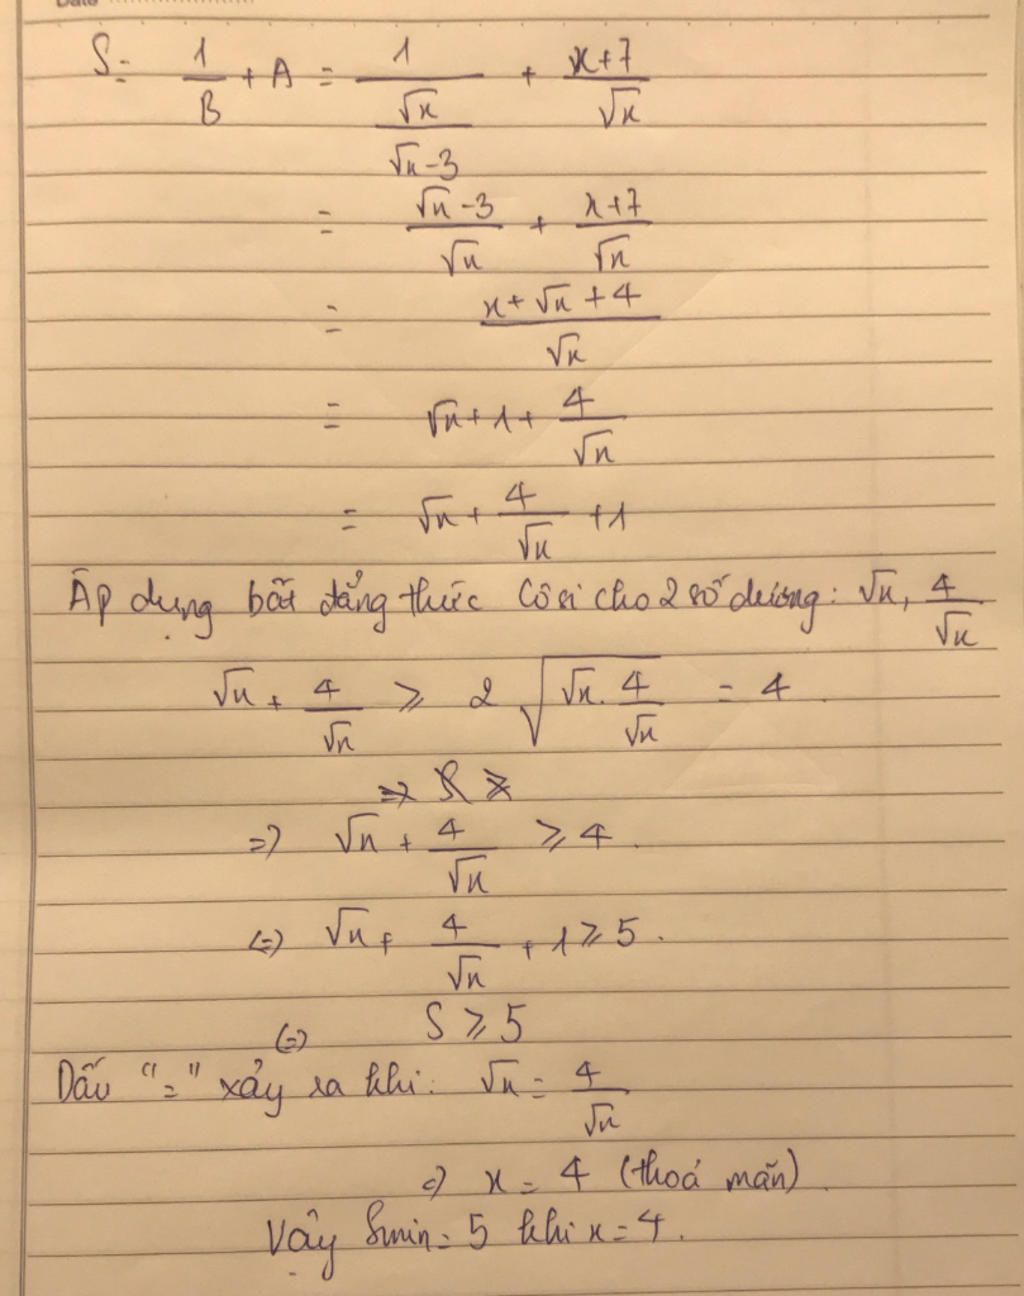 Date
S = 1/B + A = 1/(√x/(√x-3)) + (x+7)/√x
= (√x-3)/√x + (x+7)/√x
= (x+√x+4)/√x
= √x + 1 + 4/√x
= √x + 4/√x + 1
Áp dụng bất đẳng thức Côsi cho 2 số dương: √x, 4/√x
√x + 4/√x ≥ 2√(√x . 4/√x) = 4
=> √x + 4/√x ≥ 4.
(=) √x + 4/√x + 1 ≥ 5.
(=) S ≥ 5
Dấu "=" xảy ra khi: √x = 4/√x
=) x = 4 (thoả mãn).
Vậy Smin = 5 khi x = 4.